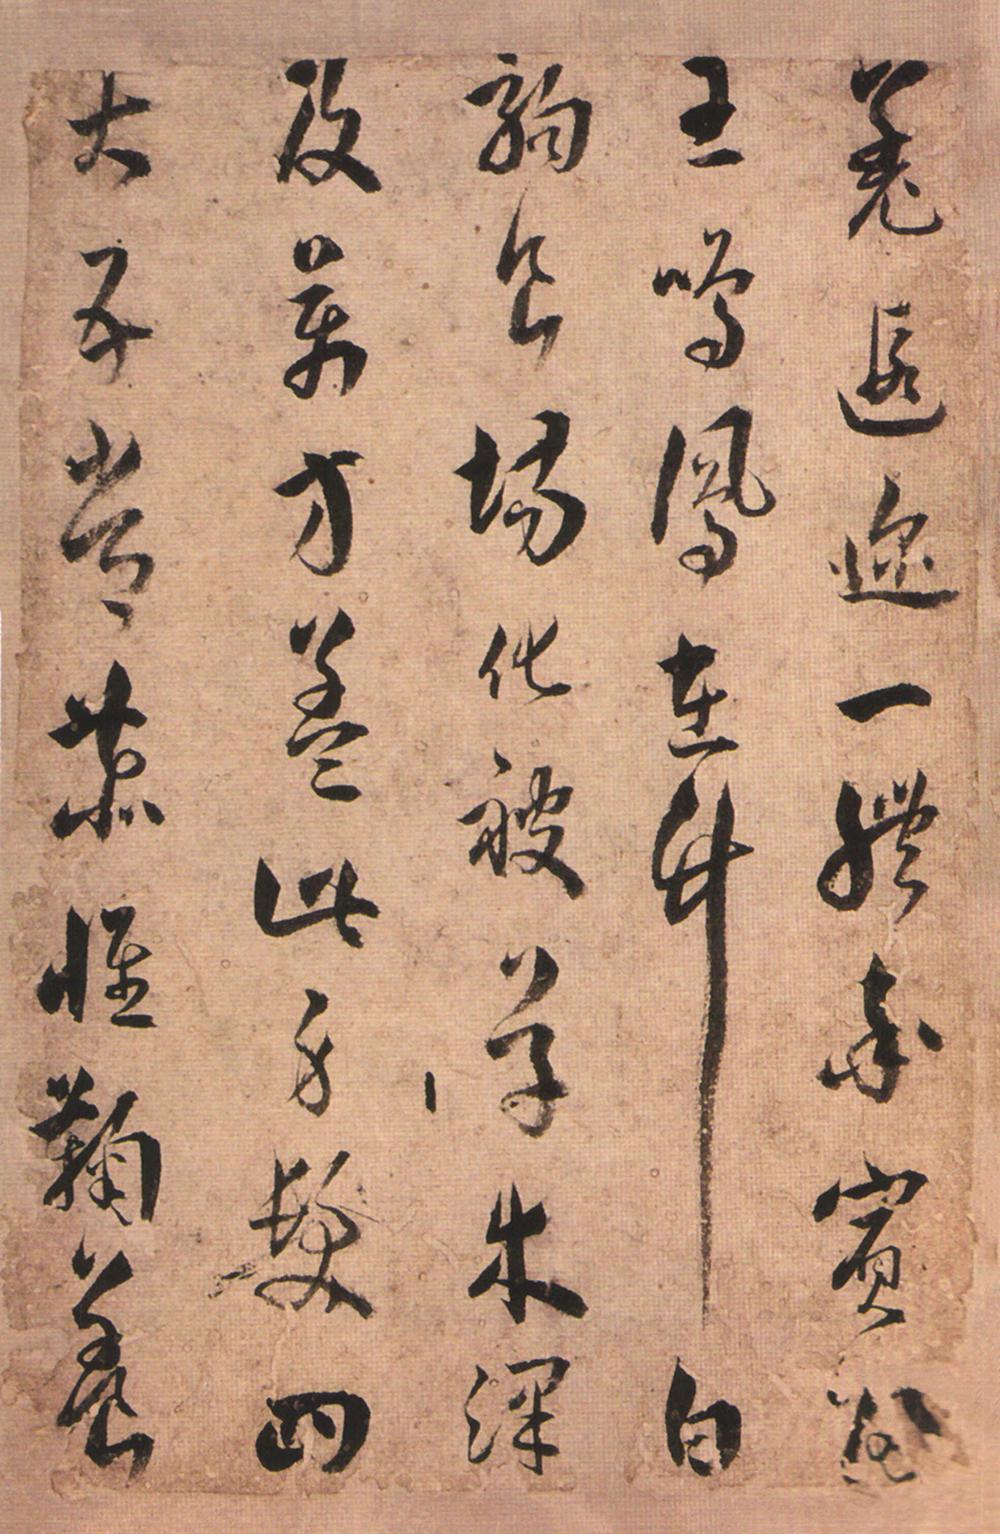 羌遐邇一體率賓歸
王鳴鳳在竹白
駒食場化被草木澤
及萬方蓋此身髮四
大五常恭惟鞠養